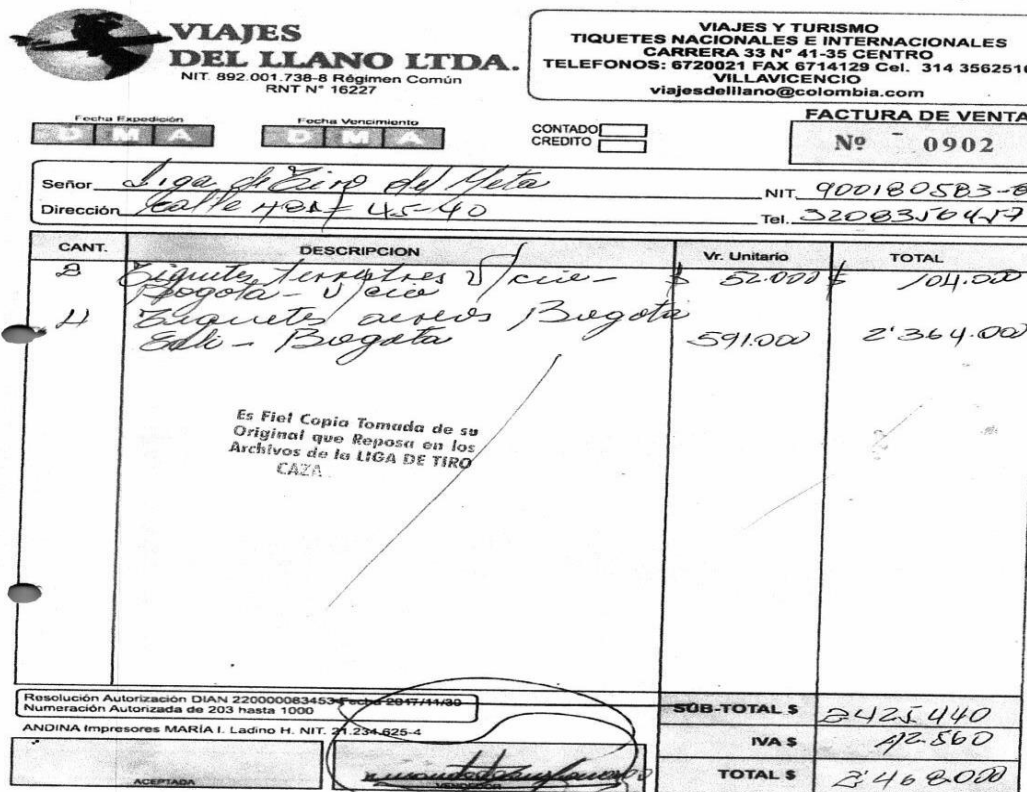 VIAJES
DEL LLANO LTDA.
NIT. 892.001.738-8 Régimen Común
RNT N° 16227
VIAJES Y TURISMO
TIQUETES NACIONALES E INTERNACIONALES
CARRERA 33 N° 41-35 CENTRO
TELEFONOS: 6720021 FAX 6714129 Cel. 314 3562516
VILLAVICENCIO
viajesdelllano@colombia.com
Fecha Expedición
D M A
Fecha Vencimiento
D M A
CONTADO
CREDITO
FACTURA DE VENTA
Nº 0902
Señor Liga de Tiro del Meta
NIT. 900180583-
Dirección Calle 48
Tel.
CANT. DESCRIPCION Vr. Unitario TOTAL
2 Tiquetes terrestres V/cio- $ 52.000 $ 104.000
Bogotá - V/cio
4 Tiquetes aereos Bogotá
Cali - Bogota 591.000 2'364.000
Es Fiel Copia Tomada de su
Original que Reposa en los
Archivos de la LIGA DE TIRO
CAZA
Resolución Autorización DIAN 220000083453 Fecha 2017/11/30
Numeración Autorizada de 203 hasta 1000
ANDINA Impresores MARÍA I. Ladino H. NIT. 21.234.625-4
ACEPTADA
VENDEDOR
SUB-TOTAL $ 2425.440
IVA $ 42.560
TOTAL $ 2'468.000